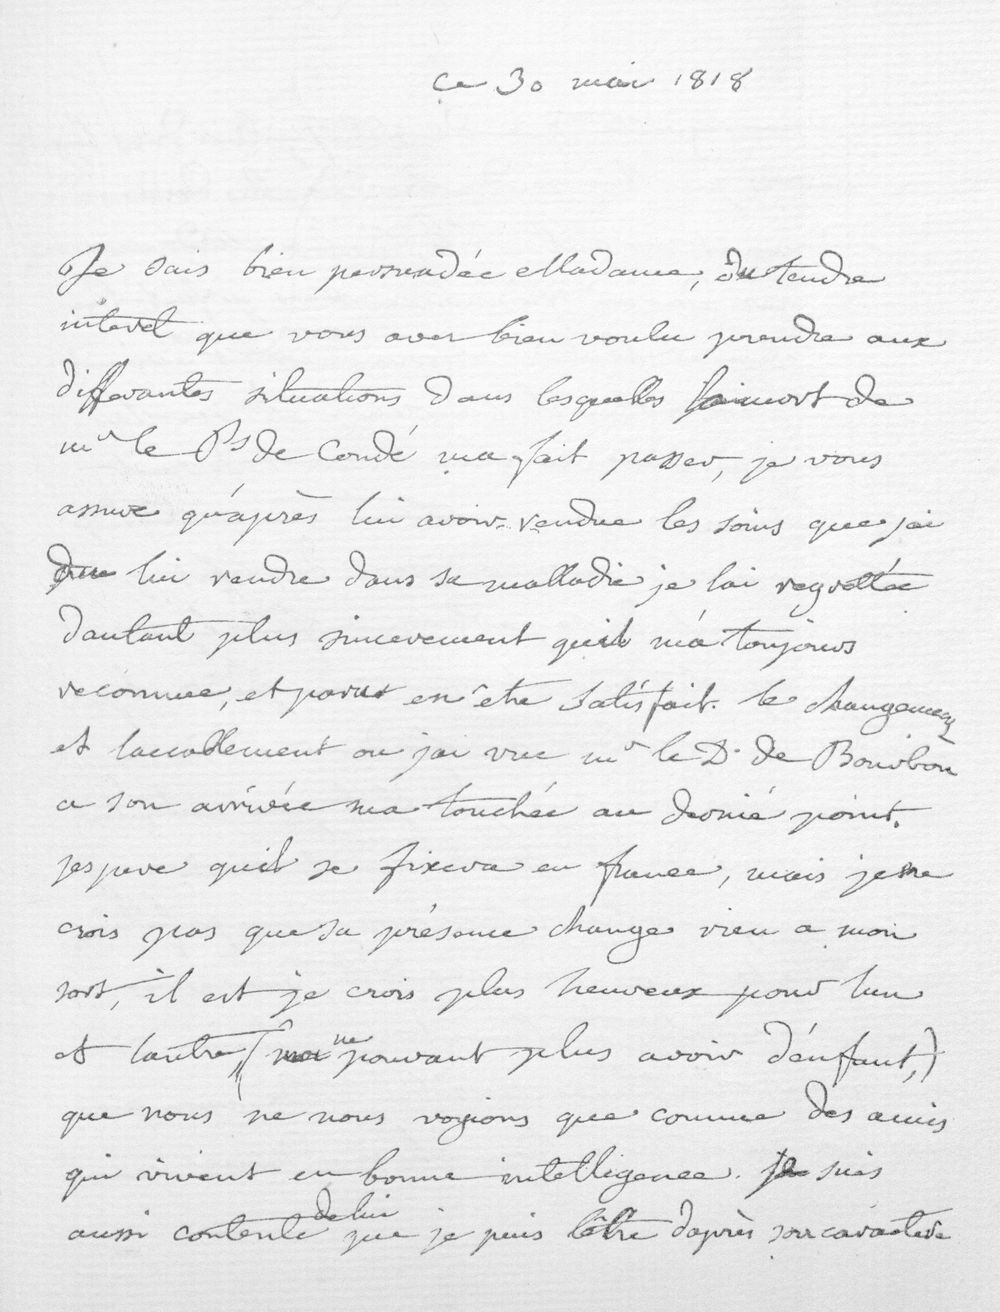 ce 30 mai 1818
Je sais bien persuadée Madame, du tendre
interet que vous avez bien voulu prendre aux
differantes situations dans lesquelles la mort de
mr le Ps de Condé ma fait passer, je vous
assure qu'après lui avoir rendue les soins que jai
lui rendre dans sa malladie je lai regrettée
dautant plus sincerement quil m'a toujours
reconnue, et parut en être satisfait. le changement
et laccablement ou jai vue mr le D. de Bourbon
a son arrivée ma touchée au dernié point.
jespere quil se fixera en france, mais je ne
crois pas que sa présence change rien a mon
sort, il est je crois plus heureux pour lun
et lautre, (ne pouvant plus avoir d'enfant,)
que nous ne nous voyions que comme des amis
qui vivent en bonne intelligence. Je suis
aussi contente de lui que je puis lêtre daprès son caractere